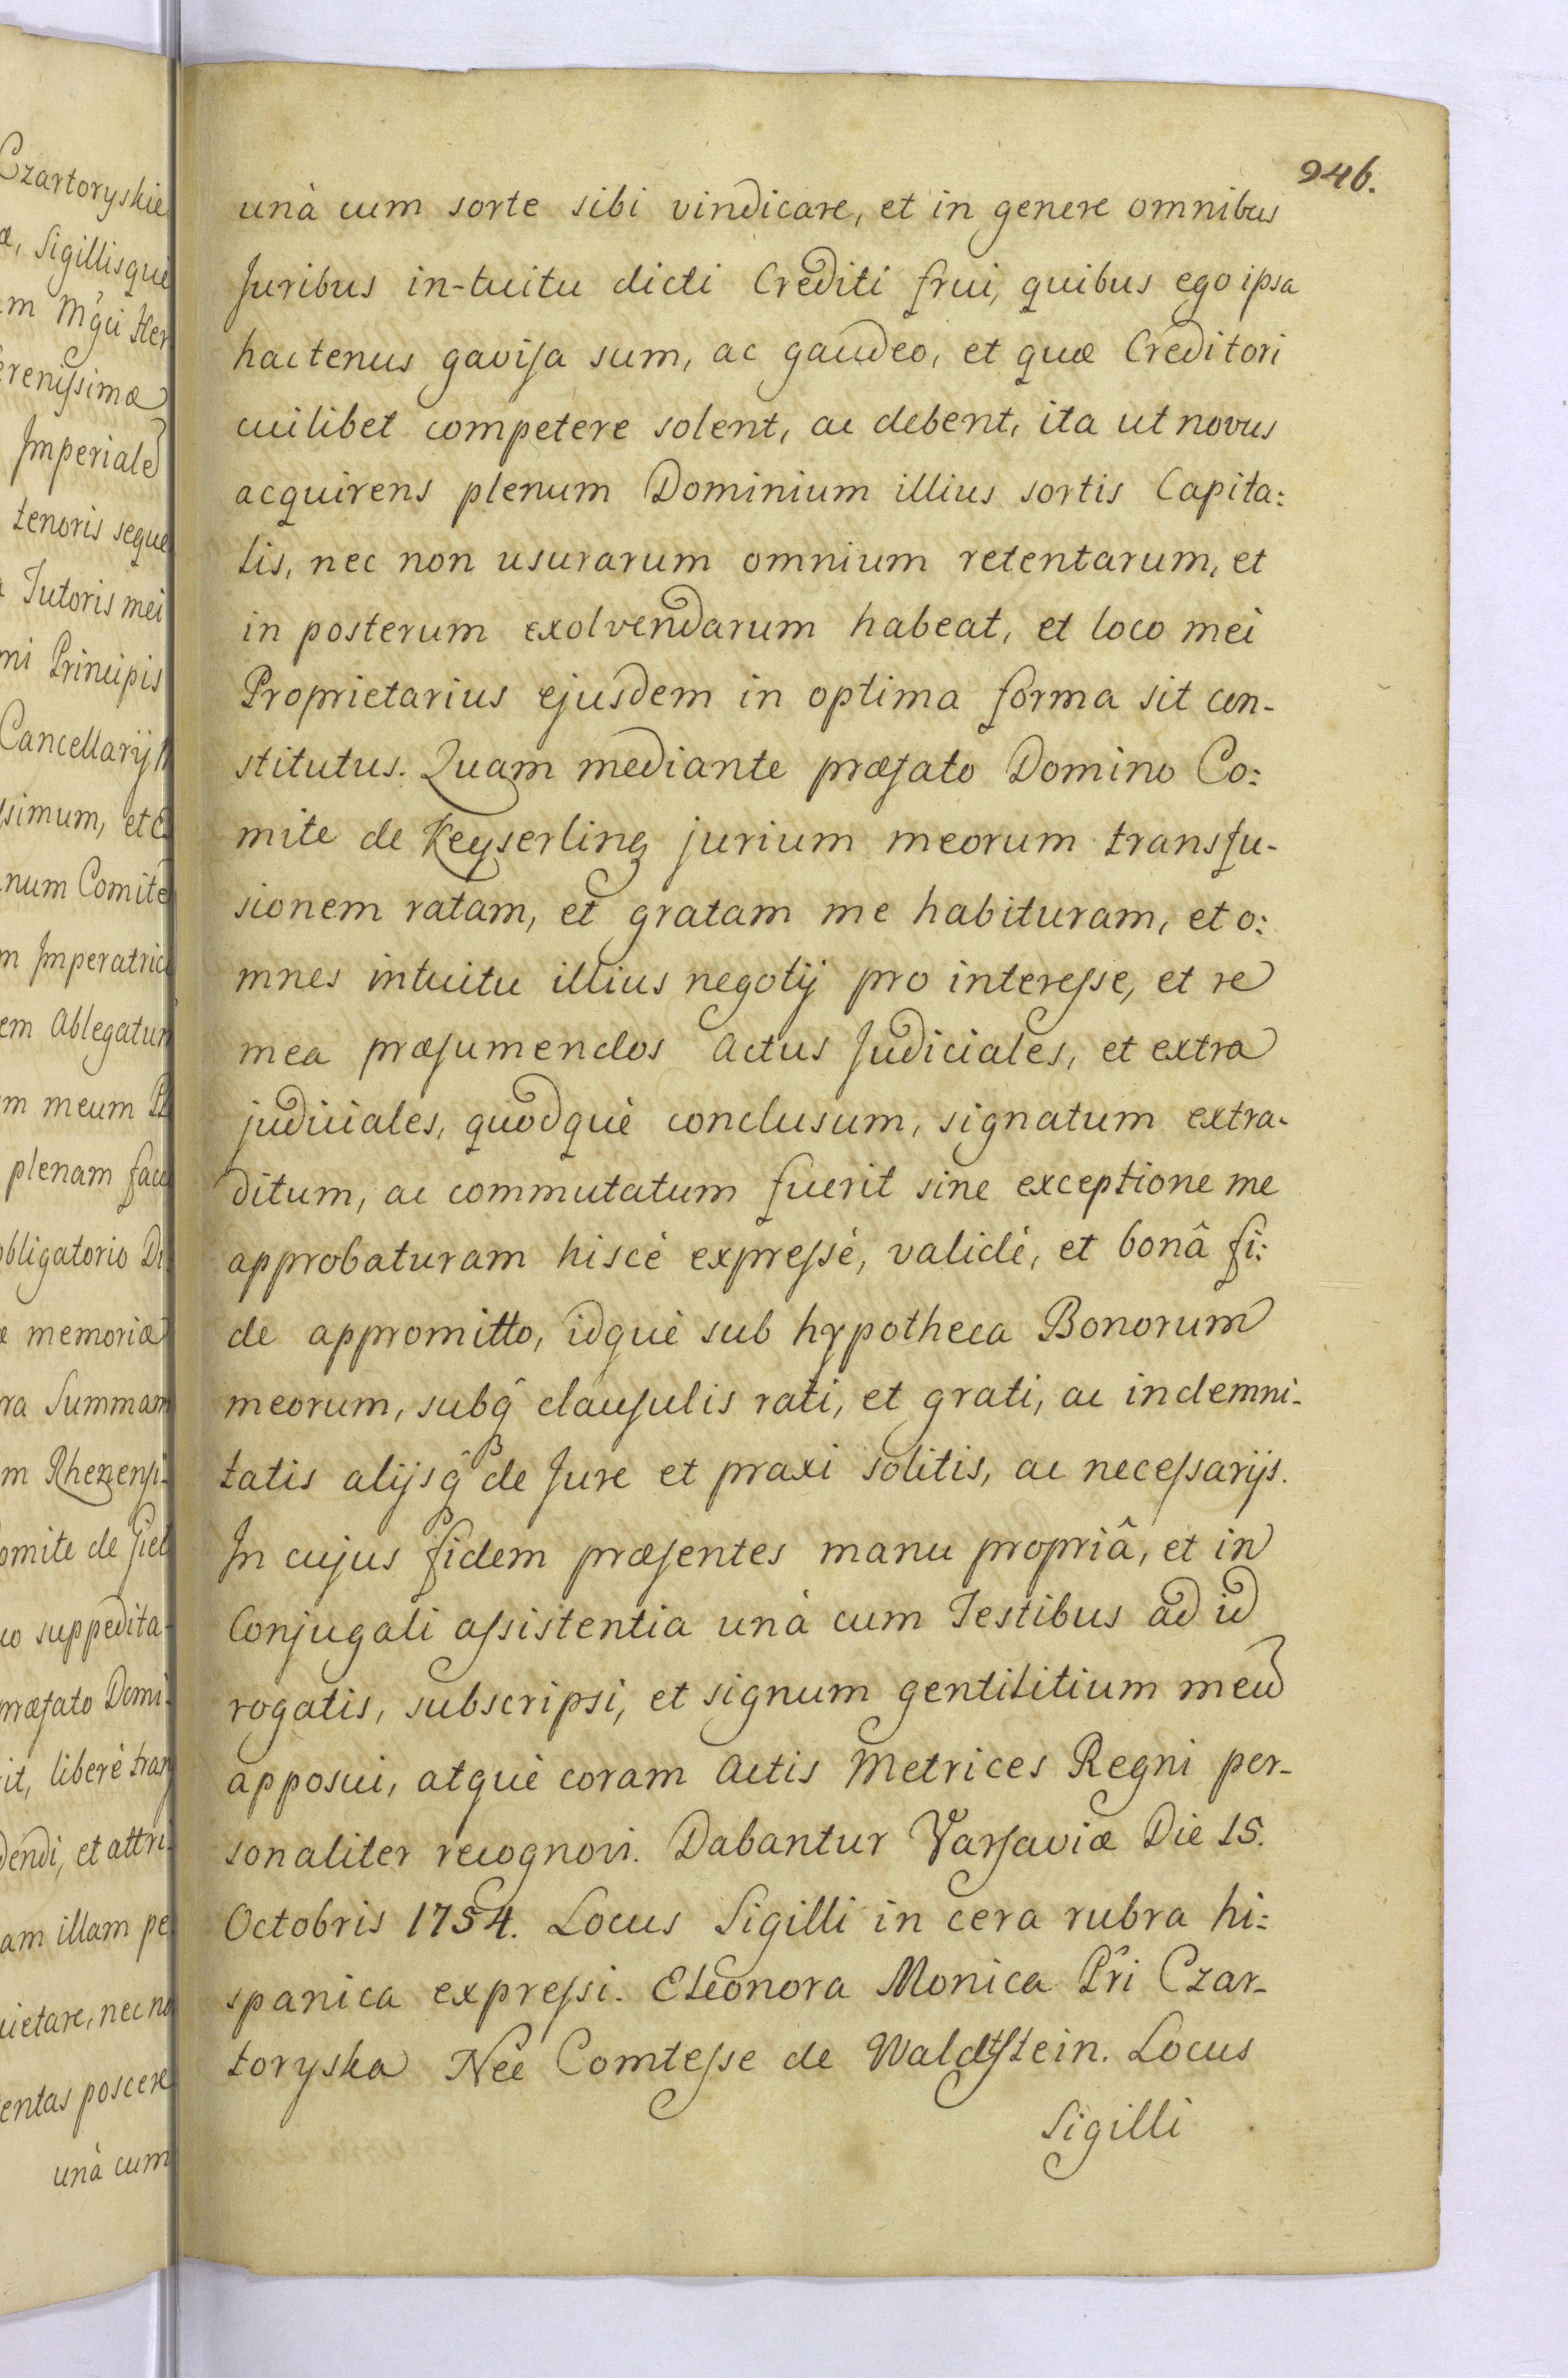 946.
unà cum sorte sibi vindicare, et in genere omnibus
Juribus in-tuitu dicti Crediti frui, quibus ego ipsa
hactenus gavisa sum, ac gaudeo, et quæ Creditori
cuilibet competere solent, ac debent, ita ut novus
acquirens plenum Dominium illius sortis Capita:
lis, nec non usurarum omnium retentarum, et
in posterum exolvendarum habeat, et loco mei
Proprietarius ejusdem in optima forma sit con-
stitutus. Quam mediante præfato Domino Co:
mite de Keyserling jurium meorum transfu-
sionem ratam, et gratam me habituram, et o:
mnes intuitu illius negotij pro interesse, et re
mea præsumendos Actus Judiciales, et extra
judiciales, quodquè conclusum, signatum extra-
ditum, ac commutatum fuerit sine exceptione me
approbaturam hiscè expressè, validè, et bonâ fi:
de appromitto, idquè sub hypotheca Bonorum
meorum, subq̂ clausulis rati, et grati, ac indemni-
tatis alijsq̂ de Jure et praxi solitis, ac necessarijs.
In cujus fidem præsentes manu propriâ, et in
Conjugali assistentia unà cum Testibus ad id
rogatis, subscripsi, et signum gentilitium meū
apposui, atquè coram Actis Metrices Regni per-
sonaliter recognovi. Dabantur Varsaviæ Die 15.
Octobris 1754. Locus Sigilli in cera rubra hi:
spanica expressi. Eleonora Monica Pri Czar-
toryska Neé Comtesse de Waldtstein. Locus
Sigilli
Czartoryskie
æ, Sigillisquè
Imperiale
Tutoris mei
Principis
Cancellarij
num Comite
Ablegatum
m meum
plenam
obligatorio
memoriæ
ra Summam
omite de
suppedita-
præfato Domi-
it, liberè
dendi, et attri-
am illam
poscere
unà cum